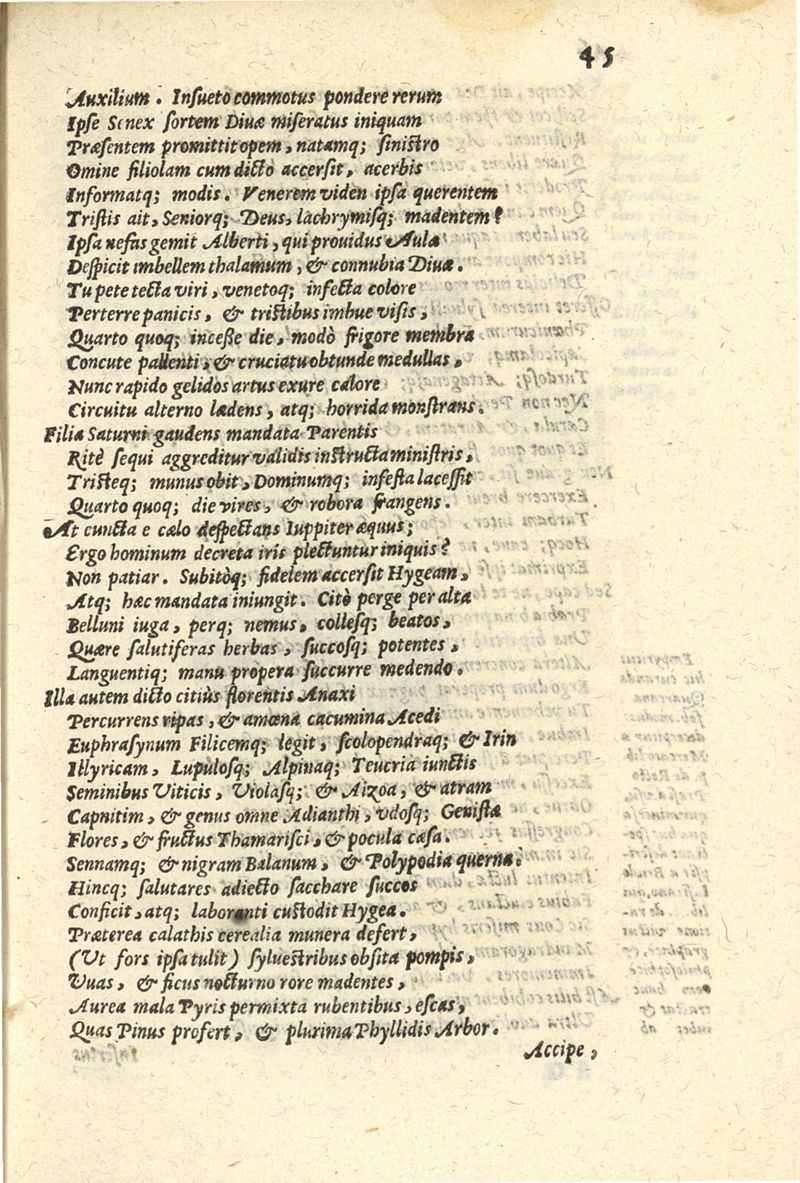 45
Auxilium. Insueto commotus pondere rerum
Ipse Senex sortem Diuæ miseratus iniquam
Præsentem promittit opem, natamq; sinistro
Omine filiolam cum dicto accersit, acerbis
Informatq; modis. Venerem viden ipsa querentem
Tristis ait, Seniorq; Deus, lachrymisq; madentem?
Ipsa nefas gemit Alberti, qui prouidus Aulæ
Despicit imbellem thalamum, & connubia Diuæ.
Tu pete tecta viri, venetoq; infecta colore
Perterre panicis, & tristibus imbue visis,
Quarto quoq; incesse die, modò frigore membra
Concute pallenti, & cruciatu obtunde medullas,
Nunc rapido gelidos artus exure calore
Circuitu alterno lædens, atq; horrida monstrans.
Filia Saturni gaudens mandata Parentis
Ritè sequi aggreditur validis instructa ministris,
Tristeq; munus obit, Dominumq; infesta lacessit
Quarto quoq; die vires, & robora frangens.
At cuncta e cælo despectans Iuppiter æquus;
Ergo hominum decreta iris plectuntur iniquis?
Non patiar. Subitòq; fidelem accersit Hygeam,
Atq; hæc mandata iniungit. Citò perge per alta
Belluni iuga, perq; nemus, collesq; beatos,
Quære salutiferas herbas, succosq; potentes,
Languentiq; manu propera succurre medendo.
Illa autem dicto citiùs florentis Anaxi
Percurrens ripas, & amœna cacumina Acedi
Euphrasynum Filicemq; legit, scolopendraq; & Irin
Illyricam, Lupulosq; Alpinaq; Teucria iunctis
Seminibus Viticis, Violasq; & Aizoa, & atram
Capnitim, & genus omne Adianthi, vdosq; Genistæ
Flores, & fructus Thamarisci, & pocula cæsa.
Sennamq; & nigram Balanum, & Polypodia querna:
Hincq; salutares adiecto sacchare succos
Conficit, atq; laboranti custodit Hygea.
Præterea calathis cerealia munera defert,
(Ut fors ipsa tulit) syluestribus obsita pompis,
Vuas, & ficus nocturno rore madentes,
Aurea mala Pyris permixta rubentibus, escas,
Quas Pinus profert, & plurima Phyllidis Arbor.
Accipe,